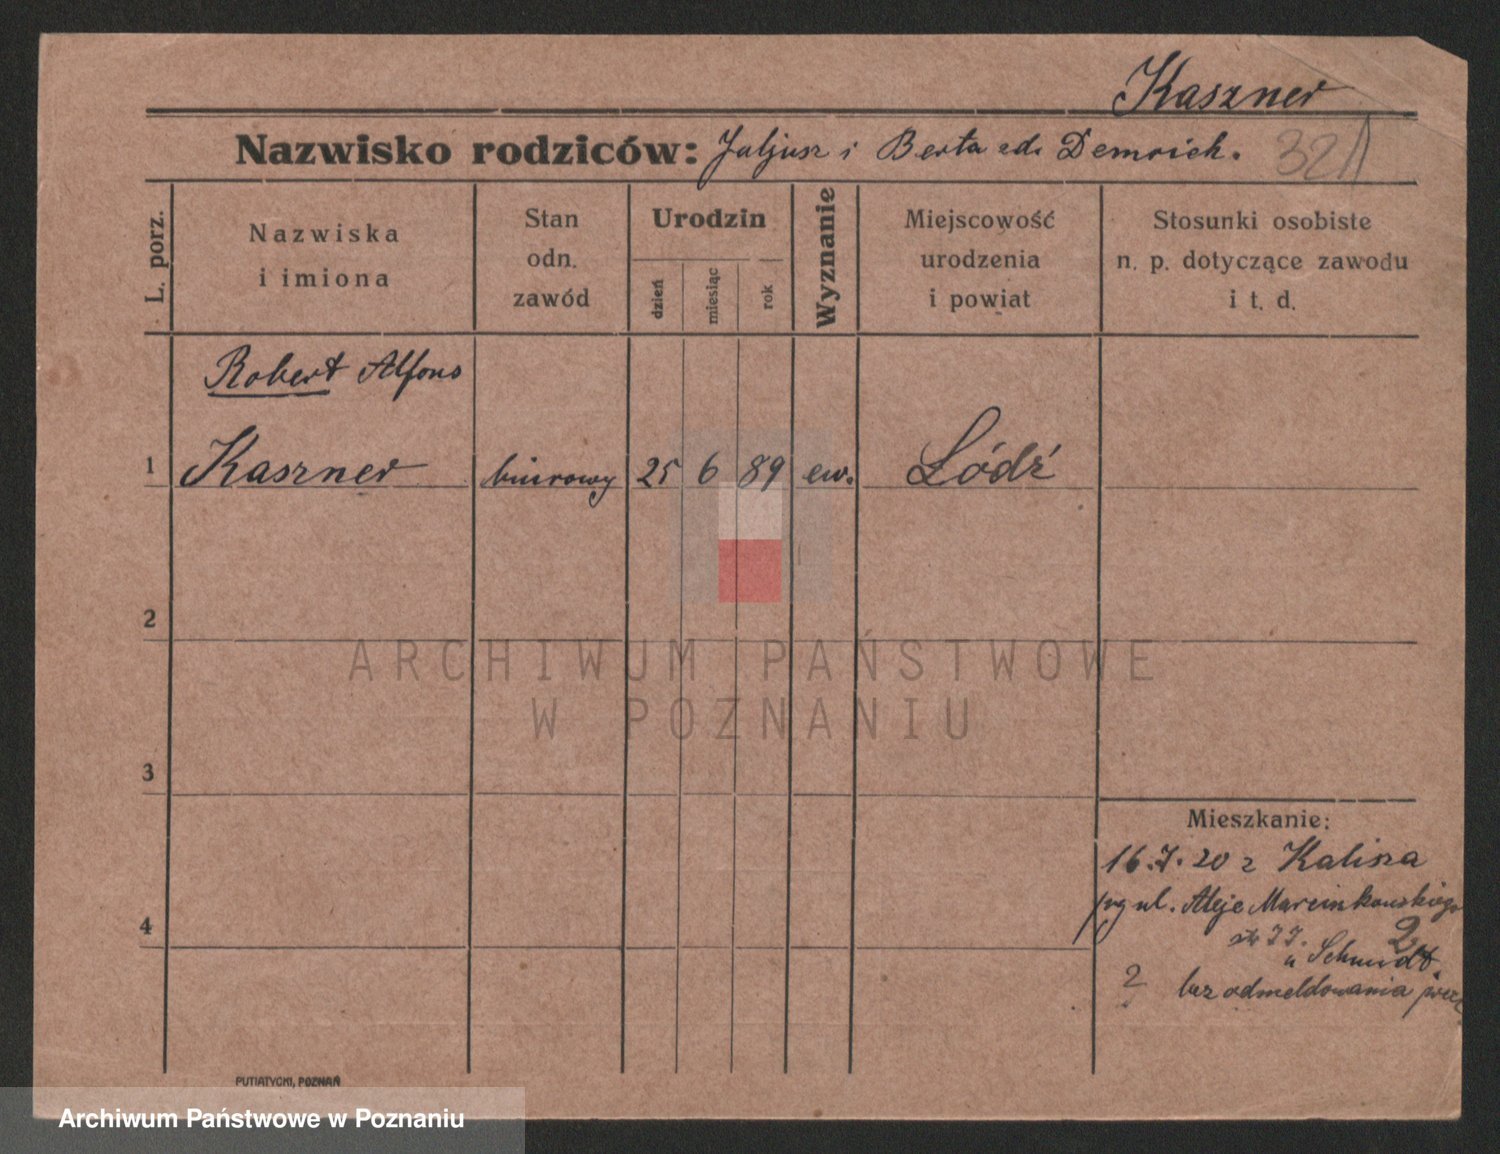 Kaszner
Nazwisko rodziców: Juljusz i Berta zd. Demrich.
32
L. porz.
Nazwiska
i imiona
Stan
odn.
zawód
Urodzin
dzień
miesiąc
rok
Wyznanie
Miejscowość
urodzenia
i powiat
Stosunki osobiste
n. p. dotyczące zawodu
i t. d.
Robert Alfons
1 Kaszner biurowy 25 6 89 ew. Łódź
2
3
4
ARCHIWUM PAŃSTWOWE
W POZNANIU
Mieszkanie:
16.7.20 z Kalisza
ul. Aleje Marcinkowskiego
2
u Schmidt.
? bez odmeldowania
PUTIATYCKI, POZNAŃ
Archiwum Państwowe w Poznaniu